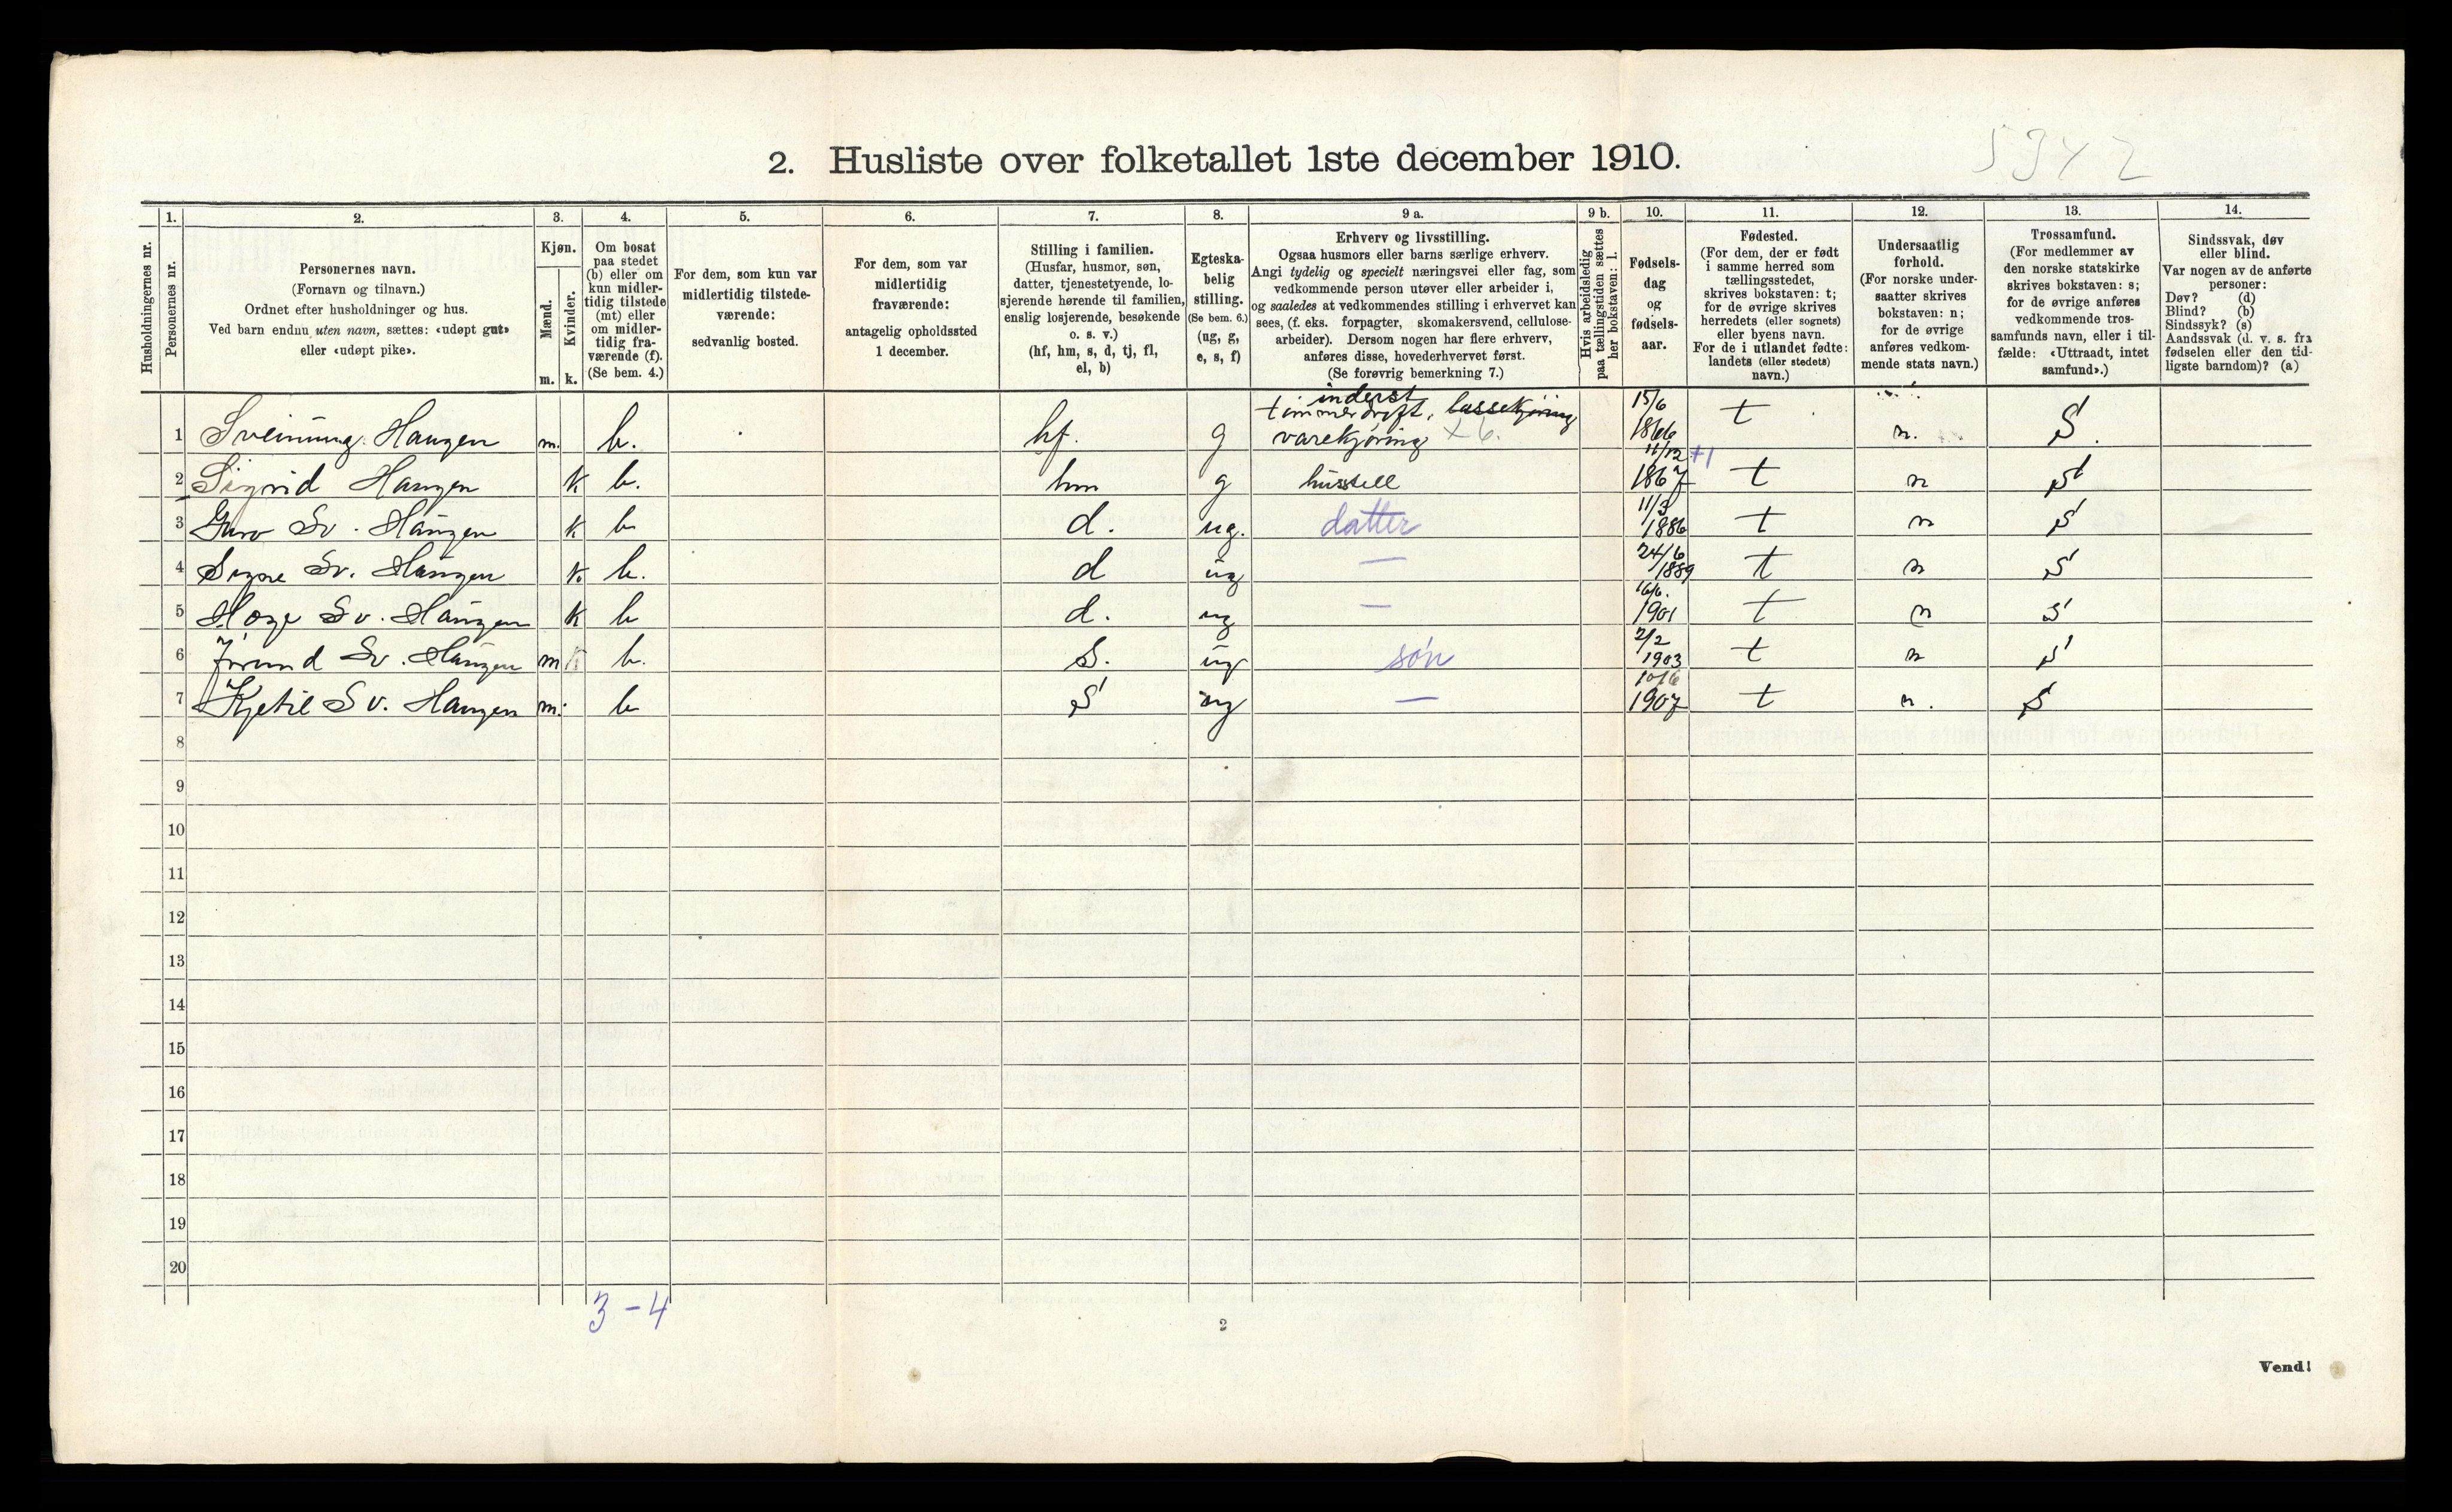 5342
2. Husliste over folketallet 1ste december 1910.
Husholdningernes nr.
1.
Personernes nr.
2.
Personernes navn.
(Fornavn og tilnavn.)
Ordnet efter husholdninger og hus.
Ved barn endnu uten navn, sættes: «udøpt gut»
eller «udøpt pike».
3.
Kjøn.
Mænd.
Kvinder.
m. k.
4.
Om bosat
paa stedet
(b) eller om
kun midler-
tidig tilstede
(mt) eller
om midler-
tidig fra-
værende (f).
(Se bem. 4.)
5.
For dem, som kun var
midlertidig tilstede-
værende:
sedvanlig bosted.
6.
For dem, som var
midlertidig
fraværende:
antagelig opholdssted
1 december.
7.
Stilling i familien.
(Husfar, husmor, søn,
datter, tjenestetyende, lo-
sjerende hørende til familien,
enslig losjerende, besøkende
o. s. v.)
(hf, hm, s, d, tj, fl,
el, b)
8.
Egteska-
belig
stilling.
(Se bem. 6.)
(ug, g,
e, s, f)
9 a.
Erhverv og livsstilling.
Ogsaa husmors eller barns særlige erhverv.
Angi tydelig og specielt næringsvei eller fag, som
vedkommende person utøver eller arbeider i,
og saaledes at vedkommendes stilling i erhvervet kan
sees, (f. eks. forpagter, skomakersvend, cellulose-
arbeider). Dersom nogen har flere erhverv,
anføres disse, hovederhvervet først.
(Se forøvrig bemerkning 7.)
9 b.
Hvis arbeidsledig
paa tællingstiden sættes
her bokstaven: l.
10.
Fødsels-
dag
og
fødsels-
aar.
11.
Fødested.
(For dem, der er født
i samme herred som
tællingsstedet,
skrives bokstaven: t;
for de øvrige skrives
herredets (eller sognets)
eller byens navn.
For de i utlandet fødte:
landets (eller stedets)
navn.)
12.
Undersaatlig
forhold.
(For norske under-
saatter skrives
bokstaven: n;
for de øvrige
anføres vedkom-
mende stats navn.)
13.
Trossamfund.
(For medlemmer av
den norske statskirke
skrives bokstaven: s;
for de øvrige anføres
vedkommende tros-
samfunds navn, eller i til-
fælde: «Uttraadt, intet
samfund».)
14.
Sindssvak, døv
eller blind.
Var nogen av de anførte
personer:
Døv? (d)
Blind? (b)
Sindssyk? (s)
Aandssvak (d. v. s. fra
fødselen eller den tid-
ligste barndom)? (a)
inderst
timmerdrift, lassekjøring 15/6
1 Sveinung Haugen m. b. hf. g varekjøring 1866 t n. S.
11/12 +1
2 Sigrid Haugen k b. hm g husstell 1867 t n S
11/3
3 Guro Sv. Haugen k b d. ug. datter 1886 t n S
24/6
4 Signe Sv. Haugen k. b. d ug — 1889 t n S
16/6.
5 Sv. Haugen k b d. ug — 1901 t n S
2/2
6 Jorund Sv. Haugen m b. S. ug søn 1903 t n S
10/6
7 Kjetil Sv. Haugen m. b S ug — 1907 t n. S
8
9
10
11
12
13
14
15
16
17
18
19
20
3 - 4
2
Vend!